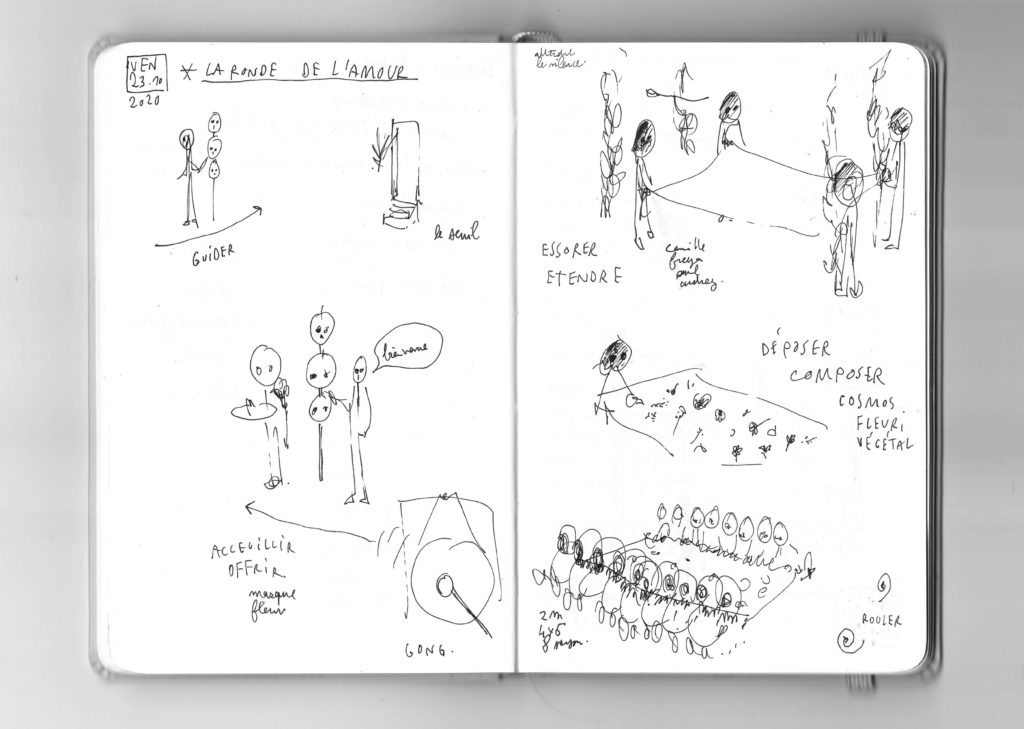 VEN
23.10
2020
* LA RONDE DE L'AMOUR
GUIDER
le seuil
bienvenue
ACCEUILLIR
OFFRIR
masque
fleur
GONG.
le silence.
ESSORER
ETENDRE
camille
freya
paul
audrey.
DÉPOSER
COMPOSER
COSMOS
FLEURI
VÉGÉTAL
2 m
ROULER